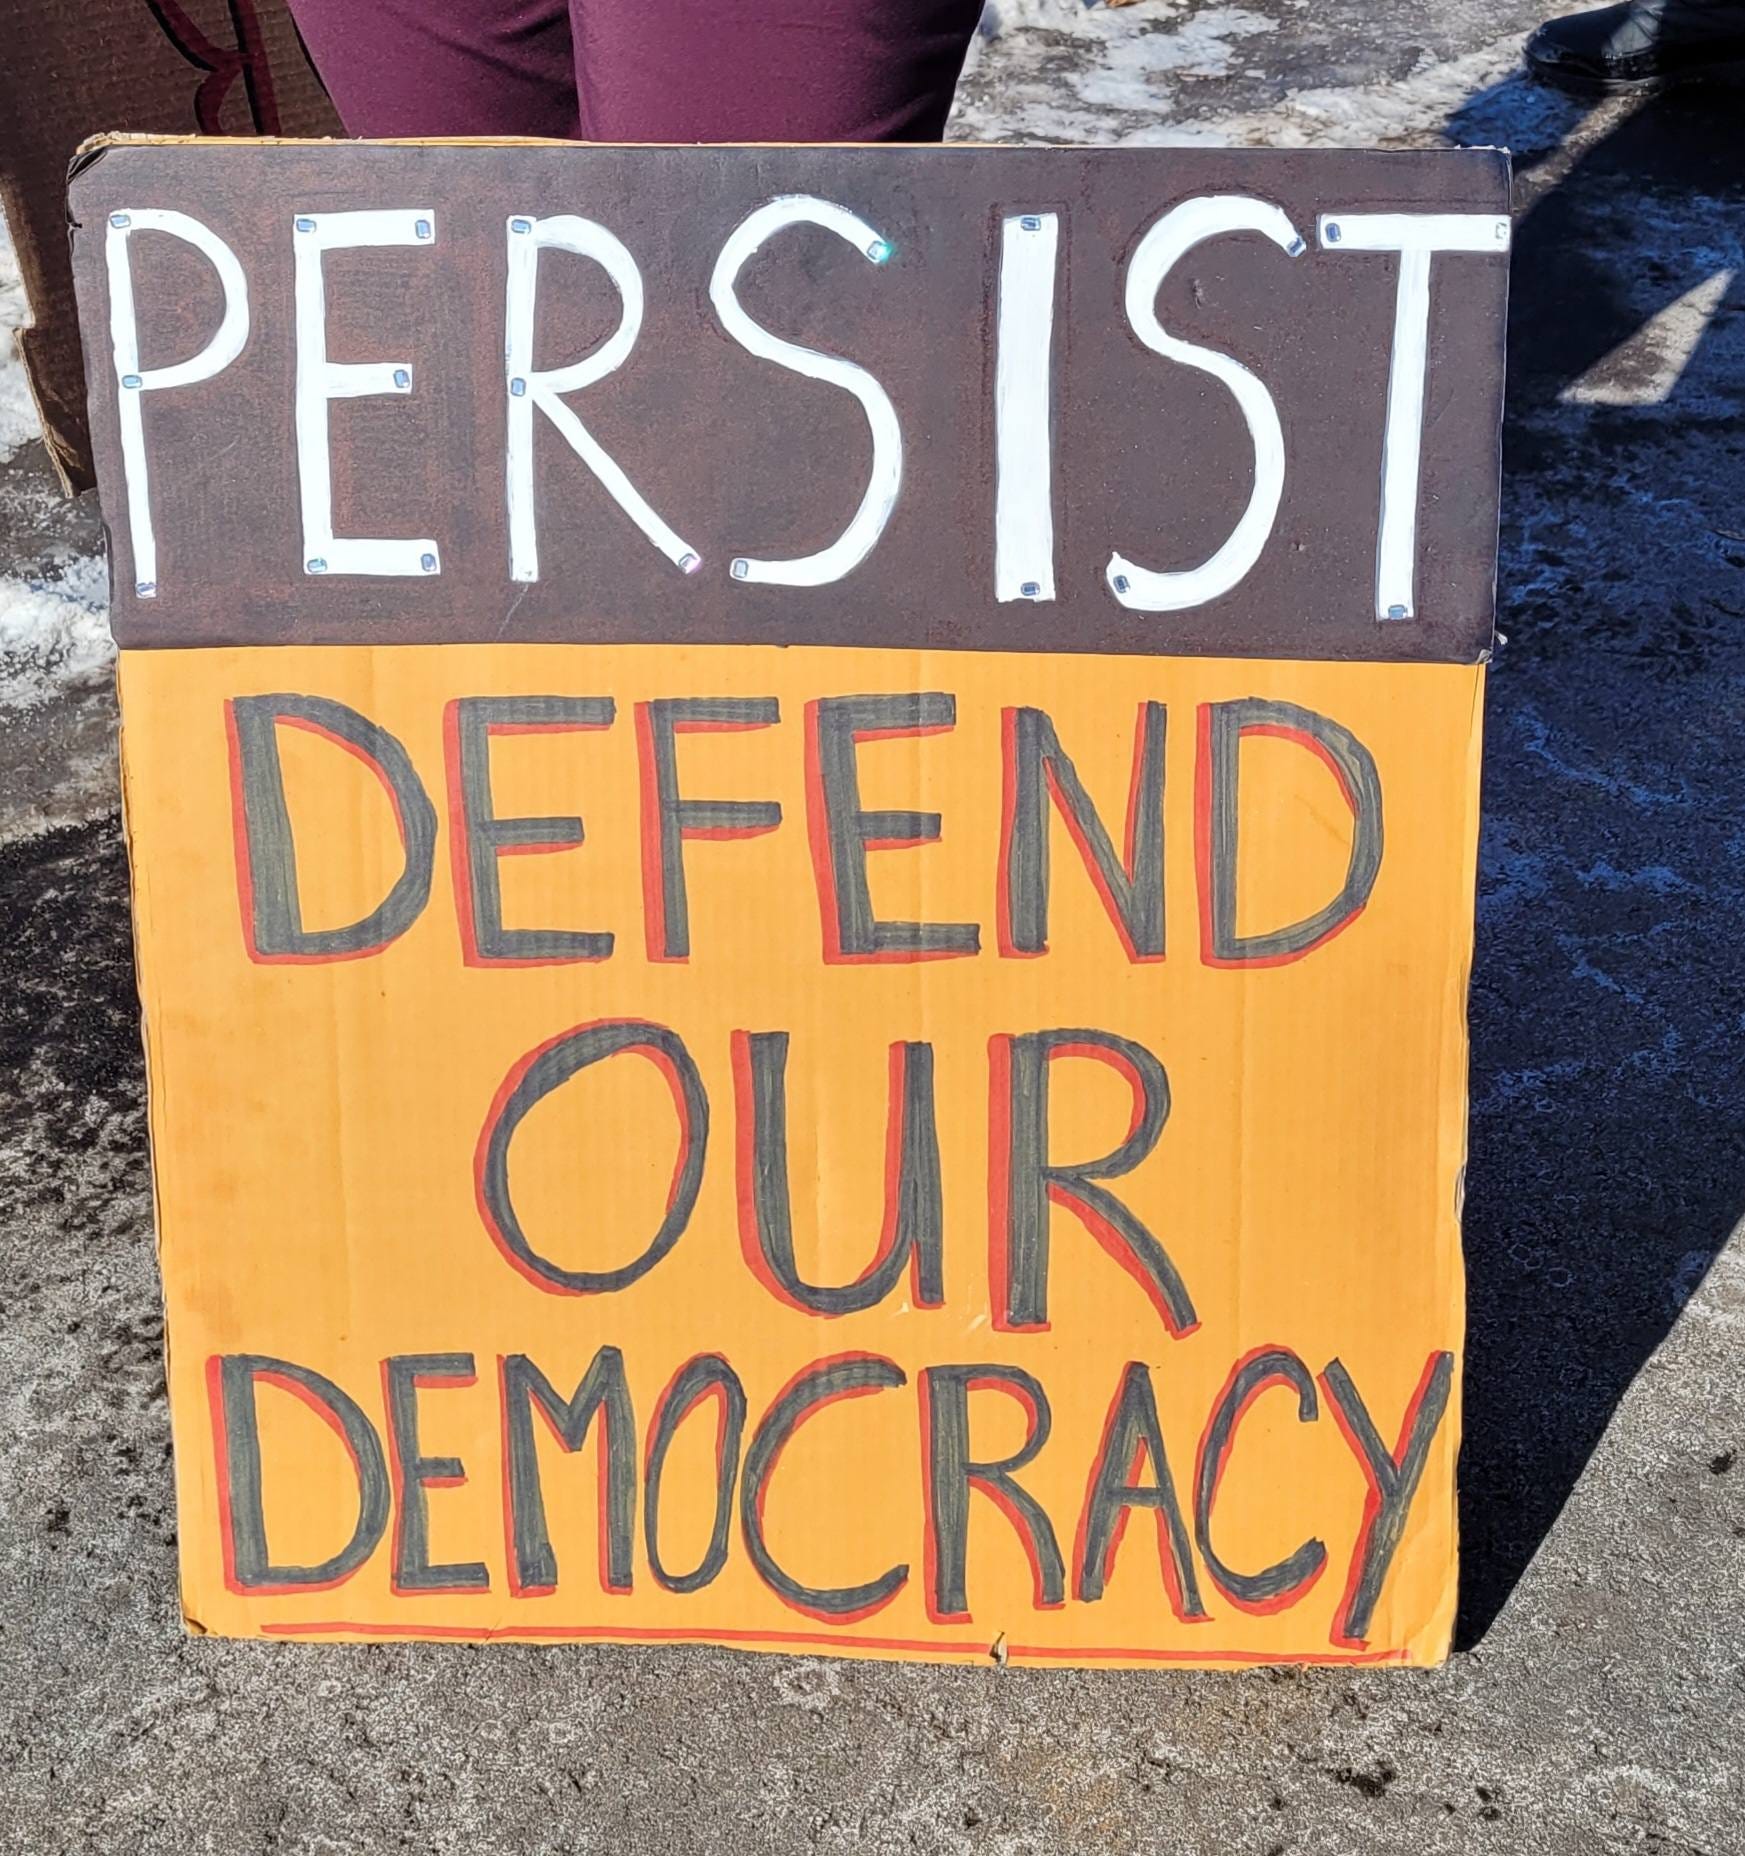 PERSIST
DEFEND
OUR
DEMOCRACY